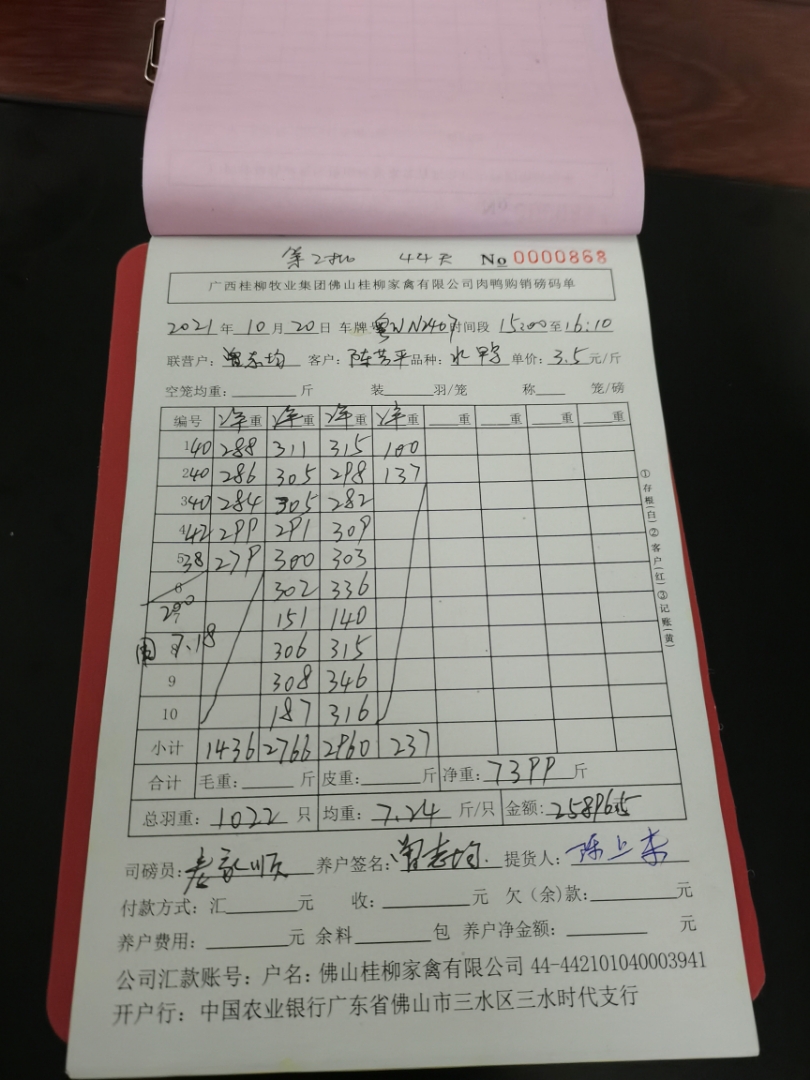 第2批 44天 No 0000868
广西桂柳牧业集团佛山桂柳家禽有限公司肉鸭购销磅码单
2021年10月20日 车牌 粤WN2407 时间段 15:00至16:10
联营户: 曾志均 客户: 陈芳平 品种: 水鸭 单价: 3.5元/斤
空笼均重: 斤 装 羽/笼 称 笼/磅
编号 净重 净重 净重 净重 重 重 重 重
1 40 288 311 315 100
2 40 286 305 298 137
3 40 284 305 282
4 42 299 291 309
5 38 279 300 303
6 302 336
200
7 151 140
7.18
8 306 315
9 308 346
10 187 316
小计 1436 2766 2960 237
合计 毛重: 斤 皮重: 斤 净重: 7399斤
总羽重: 1022只 均重: 7.24斤/只 金额: 25896.5
司磅员: 养户签名: 曾志均 提货人: 陈上
付款方式: 汇 元 收: 元 欠(余)款: 元
养户费用: 元 余料 包 养户净金额: 元
公司汇款账号: 户名: 佛山桂柳家禽有限公司 44-442101040003941
开户行: 中国农业银行广东省佛山市三水区三水时代支行
①存根(白)②客户(红)③记账(黄)